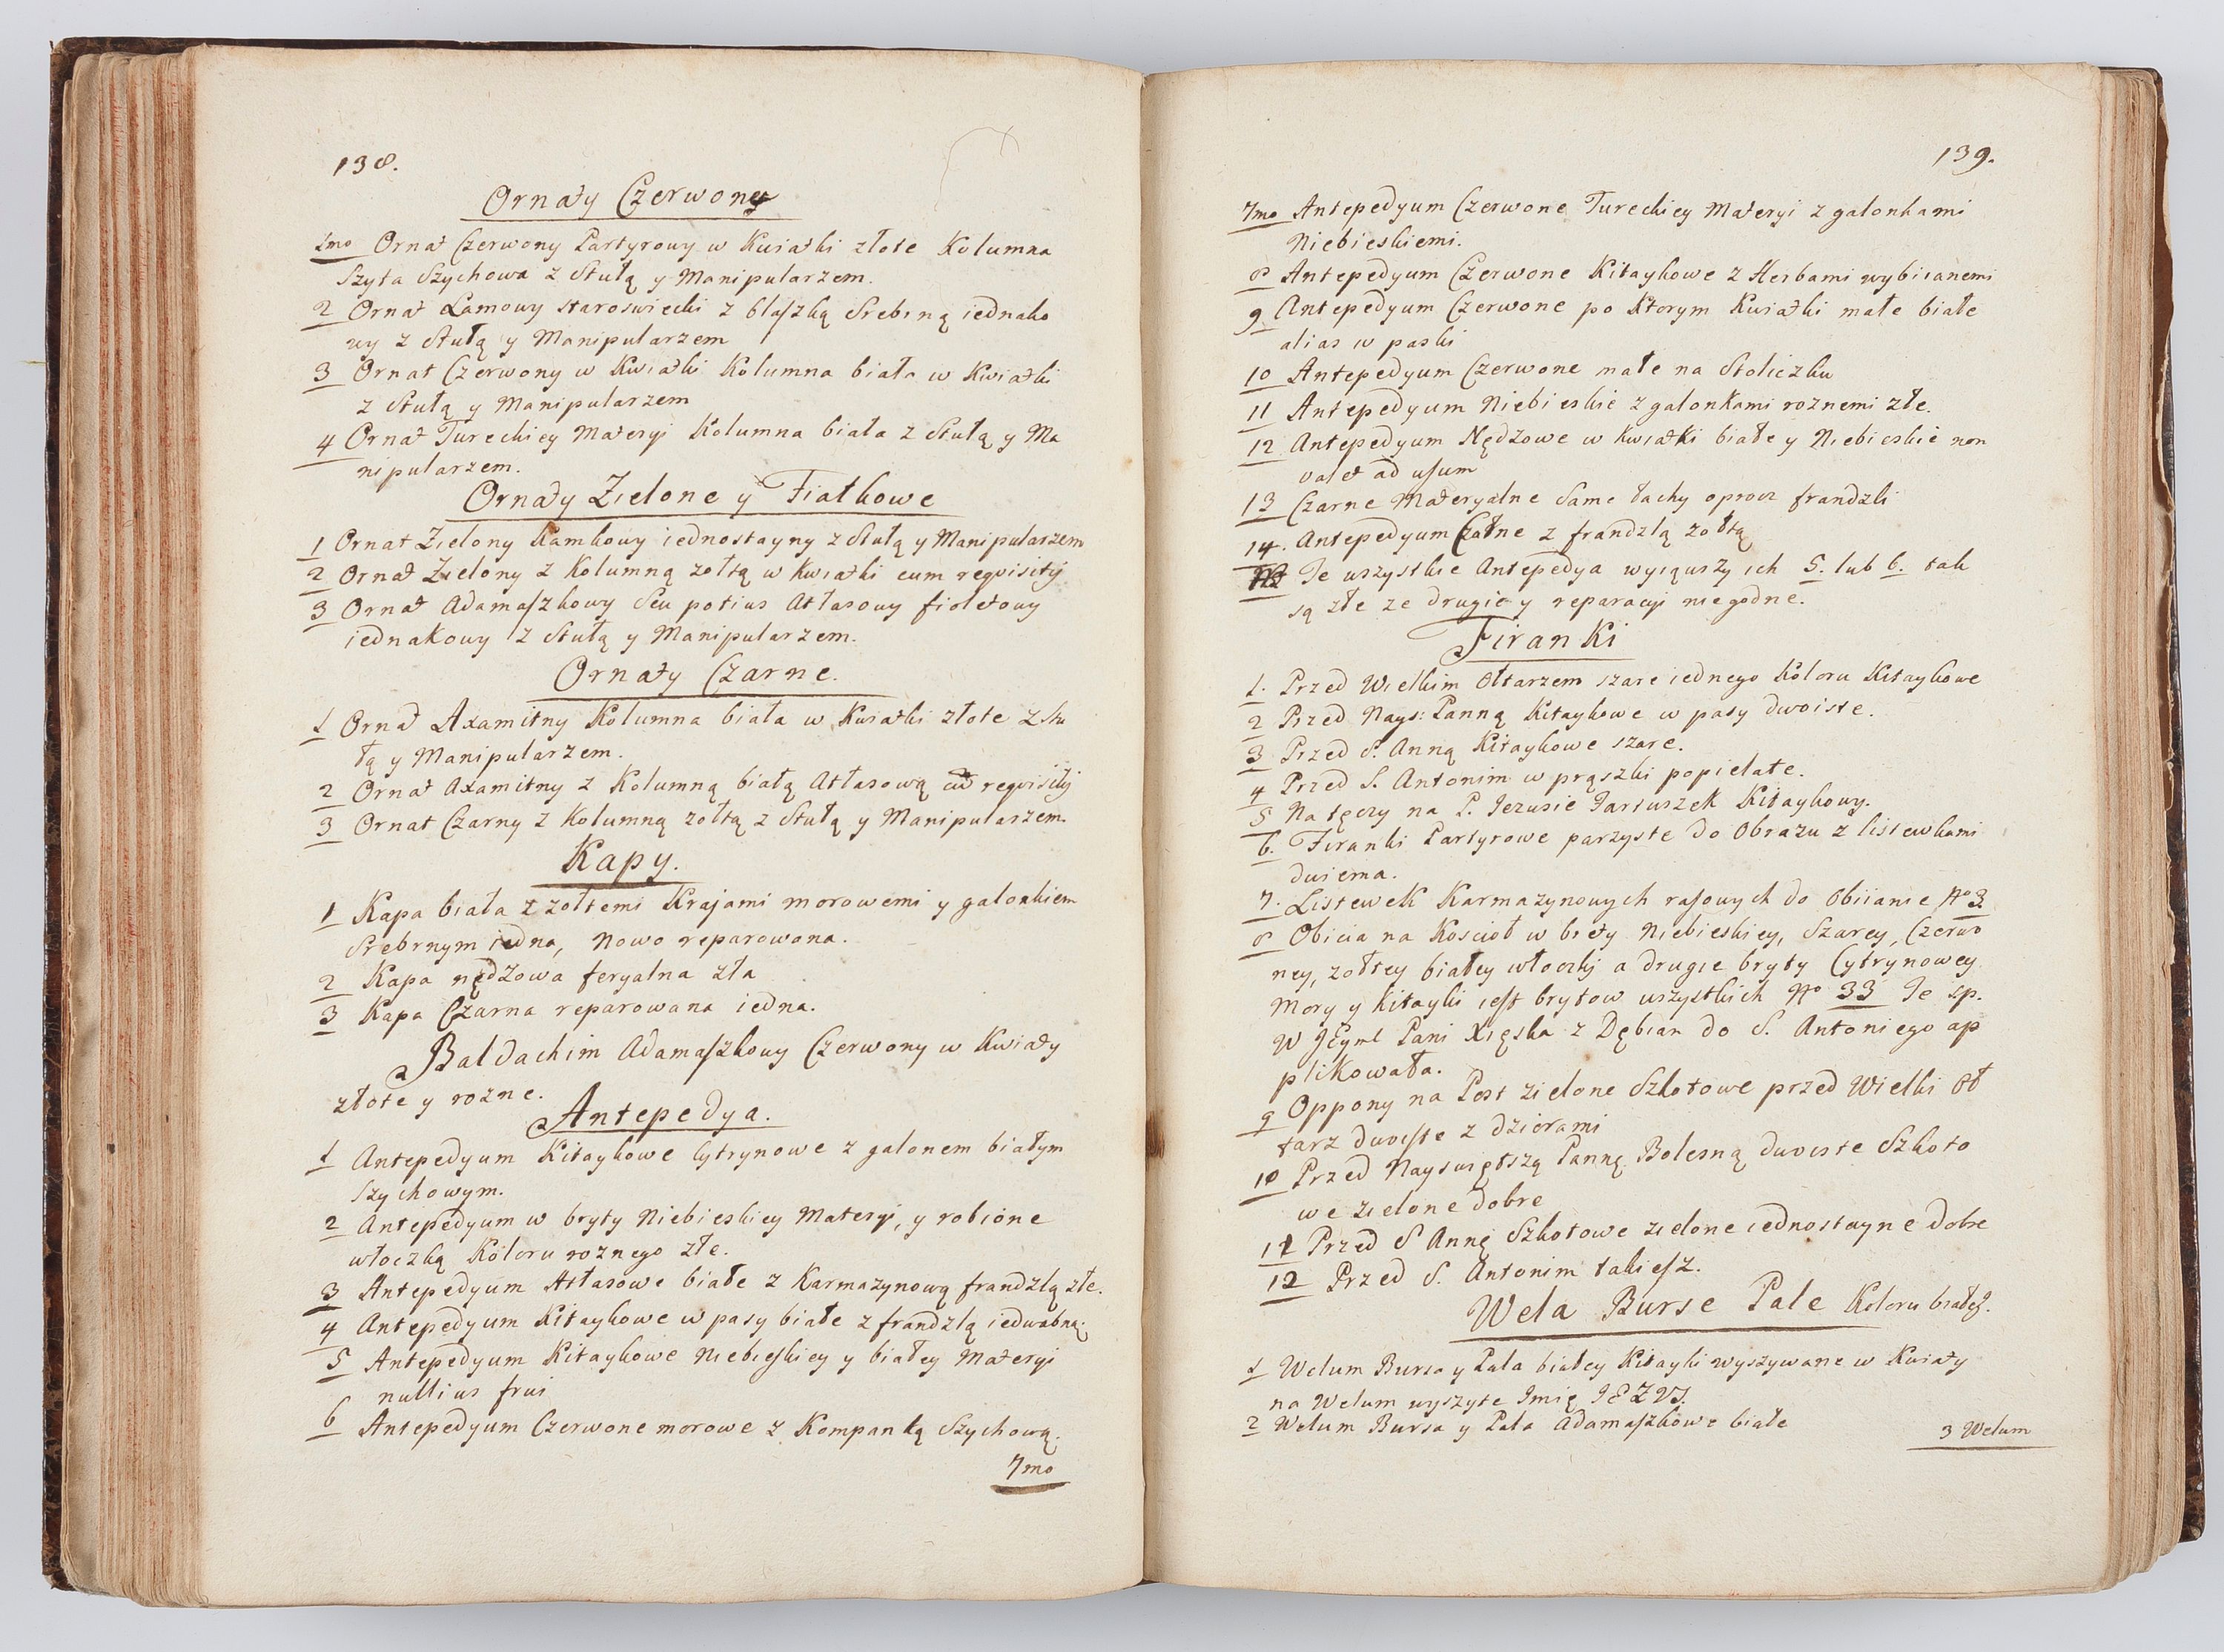 138.
Ornaty Czerwone
1mo Ornat Czerwony Partyrowy w Kwiatki złote Kolumna
Szyta Szychowa z Stułą y Manipularzem.
2 Ornat Lamowy staroswiecki z blaszką Srebrną iednako
wy z Stułą y Manipularzem
3 Ornat Czerwony w Kwiatki Kolumna biała w Kwiatki
z Stułą y Manipularzem
4 Ornat Tureckiey Materyi Kolumna biała z Stułą y Ma
nipularzem.
Ornaty Zielone y Fiałkowe
1 Ornat Zielony Kamkowy iednostayny z Stułą y Manipularzem
2 Ornat Zielony z Kolumną zołtą w Kwiatki cum reqvisitÿ
3 Ornat Adamaszkowy Seu potius Atłasowy fioletowy
iednakowy z Stułą y Manipularzem.
Ornaty Czarne.
1 Ornat Axamitny Kolumna biała w Kwiatki złote z Stu
łą y Manipularzem.
2 Ornat Axamitny z Kolumną białą Atłasową cū reqvisitÿ
3 Ornat Czarny z Kolumną zołtą z Stułą y Manipularzem.
Kapy.
1 Kapa biała z zołtemi Krajami morowemi y galonkiem
Srebrnym iedna, Nowo reparowana.
2 Kapa nędzowa feryalna zła
3 Kapa Czarna reparowana iedna.
Baldachim Adamaszkowy Czerwony w Kwiaty
złote y rozne.
Antepedya.
1 Antepedyum Kitaykowe Cytrynowe z galonem białym
Szychowym.
2 Antepedyum w bryty Niebieskiey Materyi, y robione
włoczką Koloru roznego złe.
3 Antepedyum Atłasowe białe z Karmazynową frandzlą złe.
4 Antepedyum Kitaykowe w pasy białe z frandzlą iedwabną.
5 Antepedyum Kitaykowe Niebieskiey y białey Materyi
nullius frui
6 Antepedyum Czerwone morowe z Kompanką Szychową.
7mo
139.
7mo Antepedyum Czerwone Tureckiey Materyi z galonkami
Niebieskiemi.
8 Antepedyum Czerwone Kitaykowe z Herbami wybiianemi
9 Antepedyum Czerwone po Ktorym Kwiatki małe białe
alias w paski
10 Antepedyum Czerwone małe na Stoliczku
11 Antepedyum Niebieskie z galonkami roznemi złe.
12 Antepedyum Nędzowe w Kwiatki białe y Niebieskie non
valet ad usum
13 Czarne Materyalne Same łachy oprocz frandzli
14. Antepedyum Czarne z frandzlą zołtą
NB Te wszystkie Antepedya wyiąwszy ich 5. lub 6. tak
są złe ze drugie y reparacyi niegodne.
Firanki
1. Przed Wielkim Ołtarzem szare iednego Koloru Kitaykowe
2 Przed Nays: Panną Kitaykowe w pasy dwoiste.
3 Przed S. Anną Kitaykowe szare.
4 Przed S. Antonim w prąszki popielate.
5 Na tęczy na P. Jezusie Fartuszek Kitaykowy.
6. Firanki Partyrowe parzyste do Obrazu z listewkami
dwiema.
7. Listewek Karmazynowych rasowych do Obiianie No 3.
8 Obicia na Kościoł w brety Niebieskiey, Szarey, Czerwo
ney, zołtey białey włoczkÿ a drugie bryty Cytrynowey
Mory y Kitayki iest brytow wszystkich No 33 Te sp.
W JEyMć Pani Xięska z Dębian do S. Antoniego ap
plikowała.
9 Oppony na Post zielone Szkotowe przed Wielki Oł
tarz dwoiste z dziorami
10 Przed Nayswiętszą Panną Bolesną dwoiste Szkoto
we zielone dobre
11 Przed S Annę Szkotowe zielone iednostayne dobre
12 Przed S. Antonim takiesz.
Wela Burse Pale Koloru białeg.
1 Welum Bursa y Pala białey Kitayki wyszywane w Kwiaty
na Welum wyszyte Imię JEZVS.
2 Welum Bursa y Pala Adamaszkowe białe
3 Welum